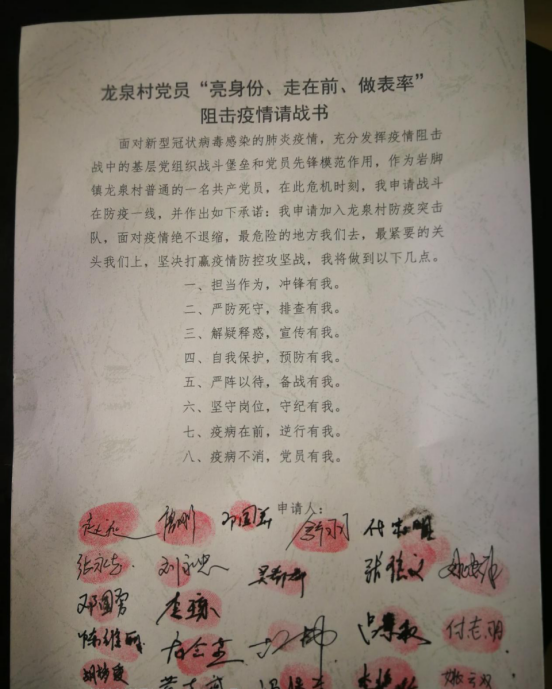 龙泉村党员“亮身份、走在前、做表率”
阻击疫情请战书
面对新型冠状病毒感染的肺炎疫情，充分发挥疫情阻击
战中的基层党组织战斗堡垒和党员先锋模范作用，作为岩脚
镇龙泉村普通的一名共产党员，在此危机时刻，我申请战斗
在防疫一线，并作出如下承诺：我申请加入龙泉村防疫突击
队，面对疫情绝不退缩，最危险的地方我们去，最紧要的关
头我们上，坚决打赢疫情防控攻坚战，我将做到以下几点。
一、担当作为，冲锋有我。
二、严防死守，排查有我。
三、解疑释惑，宣传有我。
四、自我保护，预防有我。
五、严阵以待，备战有我。
六、坚守岗位，守纪有我。
七、疫病在前，逆行有我。
八、疫病不消，党员有我。
申请人：
张永方
邓国勇
付志明